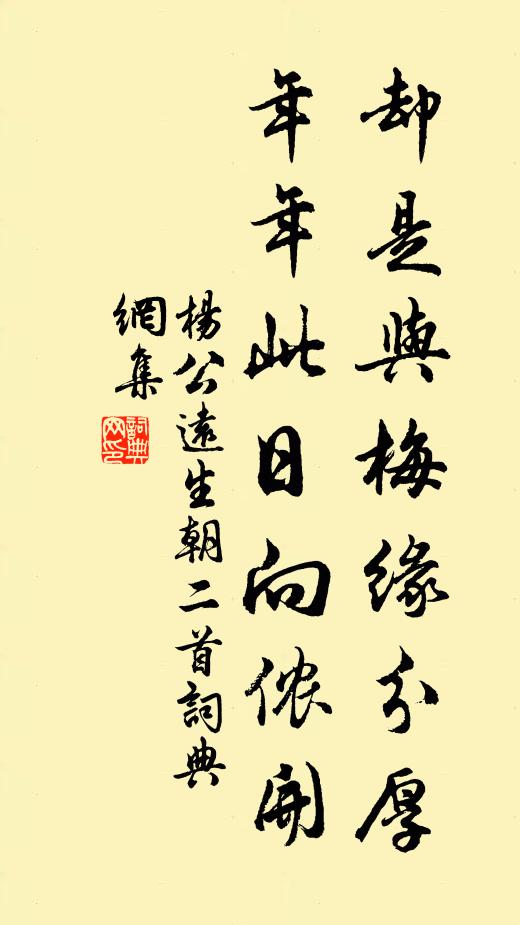 却是與梅緣分厚
年年此日向侬開
楊公遠生朝二首詞典
網集
詞典
网印